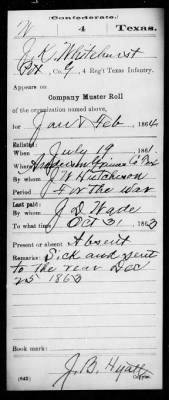 (Confederate.)
W 4 Texas.
J. K. Whitehurst
Pvt, Co. G, 4 Reg't Texas Infantry.
Appears on
Company Muster Roll
of the organization named above,
for Jan & Feb, 1864.
Enlisted:
When July 19, 1861.
Where Anderson Grimes Co Tex
By whom J W Hutcheson
Period For the war
Last paid:
By whom J D Wade
To what time Oct 31, 1863
Present or absent Absent
Remarks: Sick and sent
to the rear Dec
25 1863
Book mark:
J. B. Hyatt
(642) Copyist.